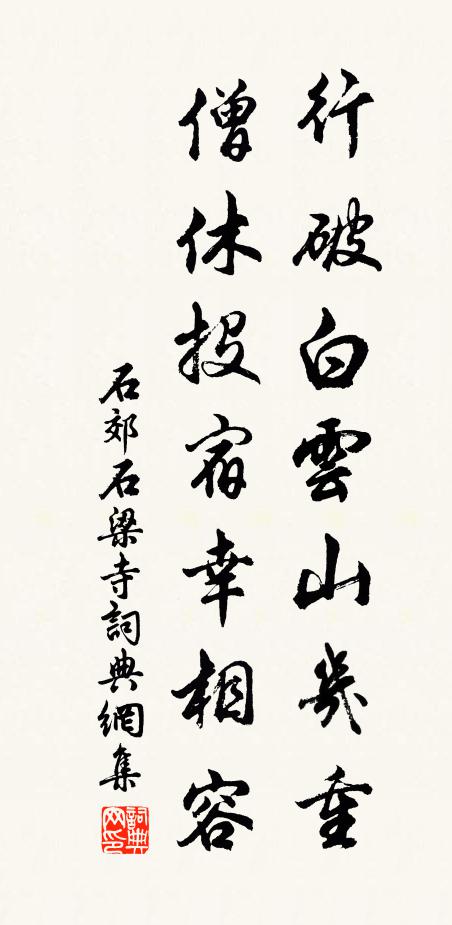 行破白雲山幾重
僧休投宿幸相容
石郊石梁寺詞典網集
詞典網印